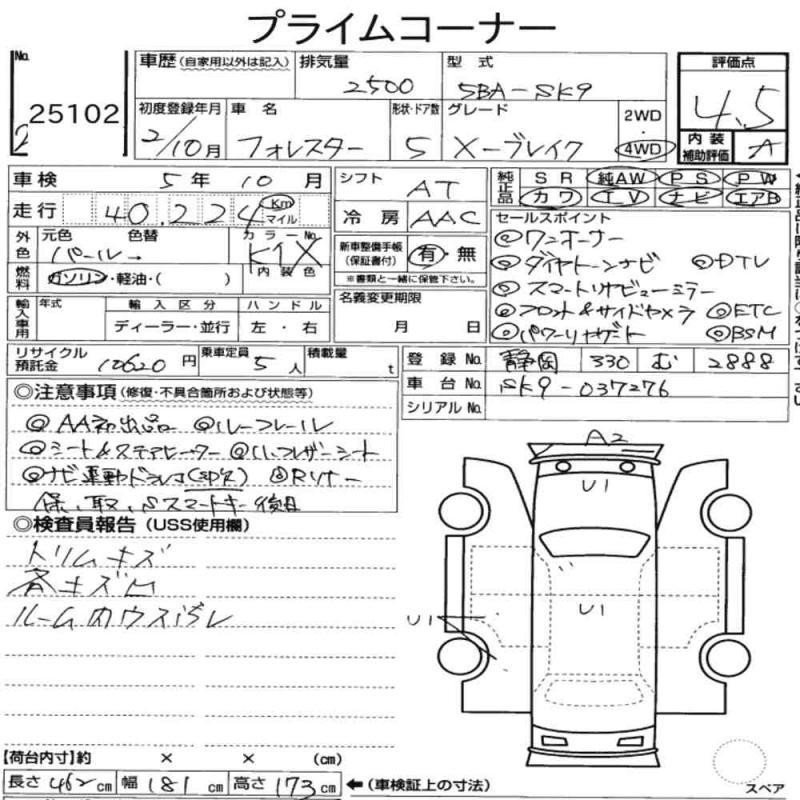 プライムコーナー
No. 25102
車歴 (自家用以外は記入) 排気量 2500 型式 5BA-SK9 評価点 4.5
初度登録年月 2/10月 車名 フォレスター 形状・ドア数 5 グレード X-ブレイク 2WD・4WD 内装補助評価 A
車検 5年10月 シフト AT 純正品 SR 純AW PS PW
カワ TV ナビ エアB
走行 40.224 Km マイル 冷房 AAC セールスポイント
外色 元色 パール 色替 カラーNo. K1X 内装色
◎ワンオーナー
新車整備手帳(保証書付) 有・無
※書類と一緒に保管下さい。
◎ダイヤトーンナビ ◎DTV
燃料 ガソリン・軽油・( )
◎スマートリヤビューミラー
名義変更期限 月 日
◎フロント&サイドカメラ ◎ETC
輸入車用 年式 輸入区分 ハンドル
ディーラー・並行 左・右
◎パワーリヤゲート ◎BSM
リサイクル預託金 10620円 乗車定員 5人 積載量 t
登録No. 静岡 330 む 2888
車台No. SK9-037276
シリアルNo.
◎注意事項 (修復・不具合箇所および状態等)
◎AA初出品 ◎ルーフレール
◎シート&ステアヒーター ◎ハーフレザーシート
◎ナビ連動ドラレコ
保、取、Sスマートキー後日
◎検査員報告 (USS使用欄)
トリムキズ
キズ凹
ルーム内ウス汚レ
A2
U1
U1
U1
【荷台内寸】約 × × (cm)
長さ 462cm 幅 181cm 高さ 173cm ←(車検証上の寸法)
スペア